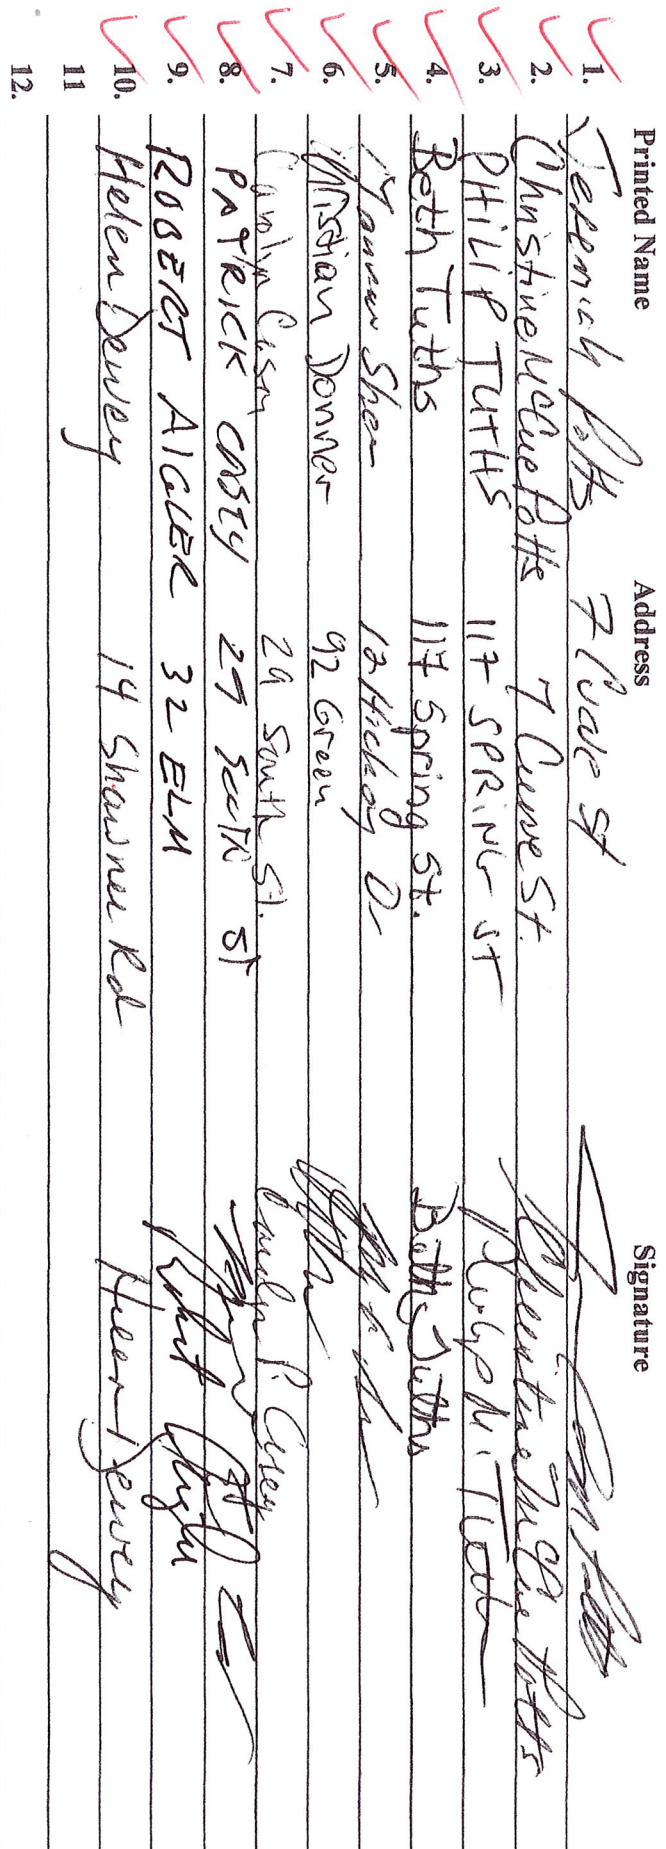 Printed Name Address Signature
1. Jeremiah Potts 7 Curve St
2. Christine McCue Potts 7 Curve St. Christine McCue Potts
3. PHILIP TUTHS 117 SPRING ST Philip M. Tuths
4. Beth Tuths 117 Spring St. Betty Tuths
5. Shea 12 Hickory Dr
6. Christian Donner 92 Green
7. Carolyn Casey 29 South St. Carolyn P. Casey
8. PATRICK CASEY 29 SOUTH ST
9. ROBERT AIGLER 32 ELM Robert Aigler
10. Helen Dewey 14 Shawnee Rd Helen Dewey
11
12.